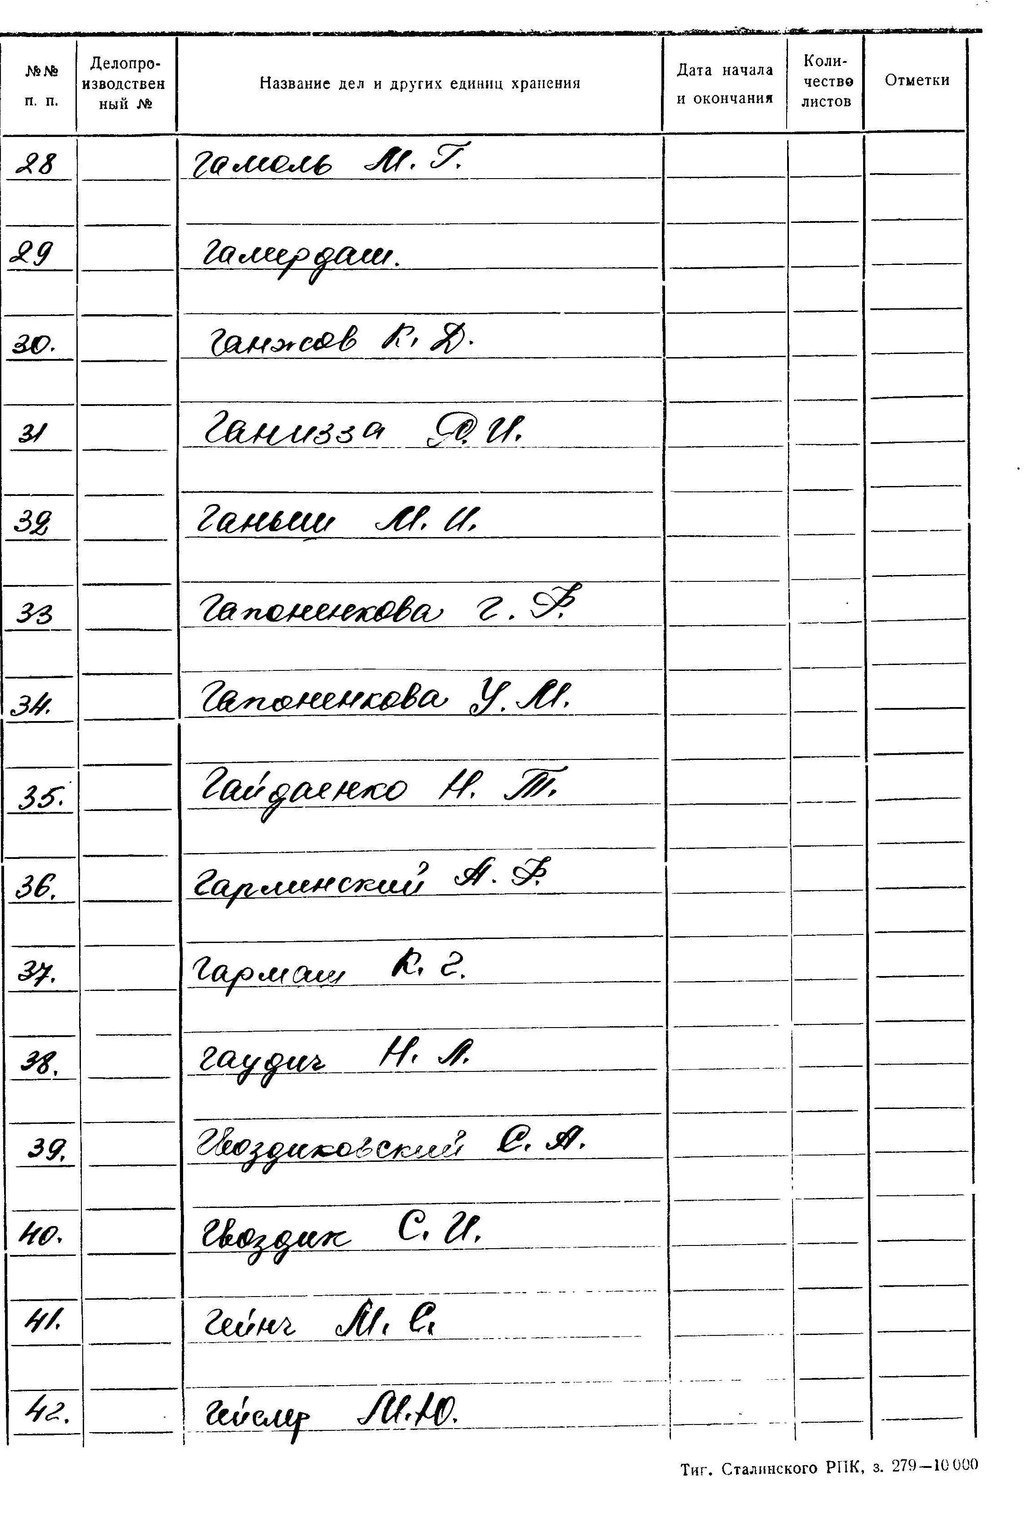 №№ п. п. Делопроизводствен ный № Название дел и других единиц хранения Дата начала и окончания Количество листов Отметки
28 Гамоль М. Г.
29 Галирдаш.
30. Ганжсов К. Д.
31 Ганизза Ф. И.
32 Ганьши М. И.
33 Гапоненкова Г. Ф.
34. Гапоненкова У. М.
35. Гайдаенко Н. Т.
36. Гарлинский А. Ф.
37. Гармаш К. Г.
38. Гаудич Н. А.
39. Гвоздиковский С. А.
40. Гвоздик С. И.
41. Гейнч М. С.
42. Гейслер М. Ю.
Тиг. Сталинского РПК, з. 279—10 000